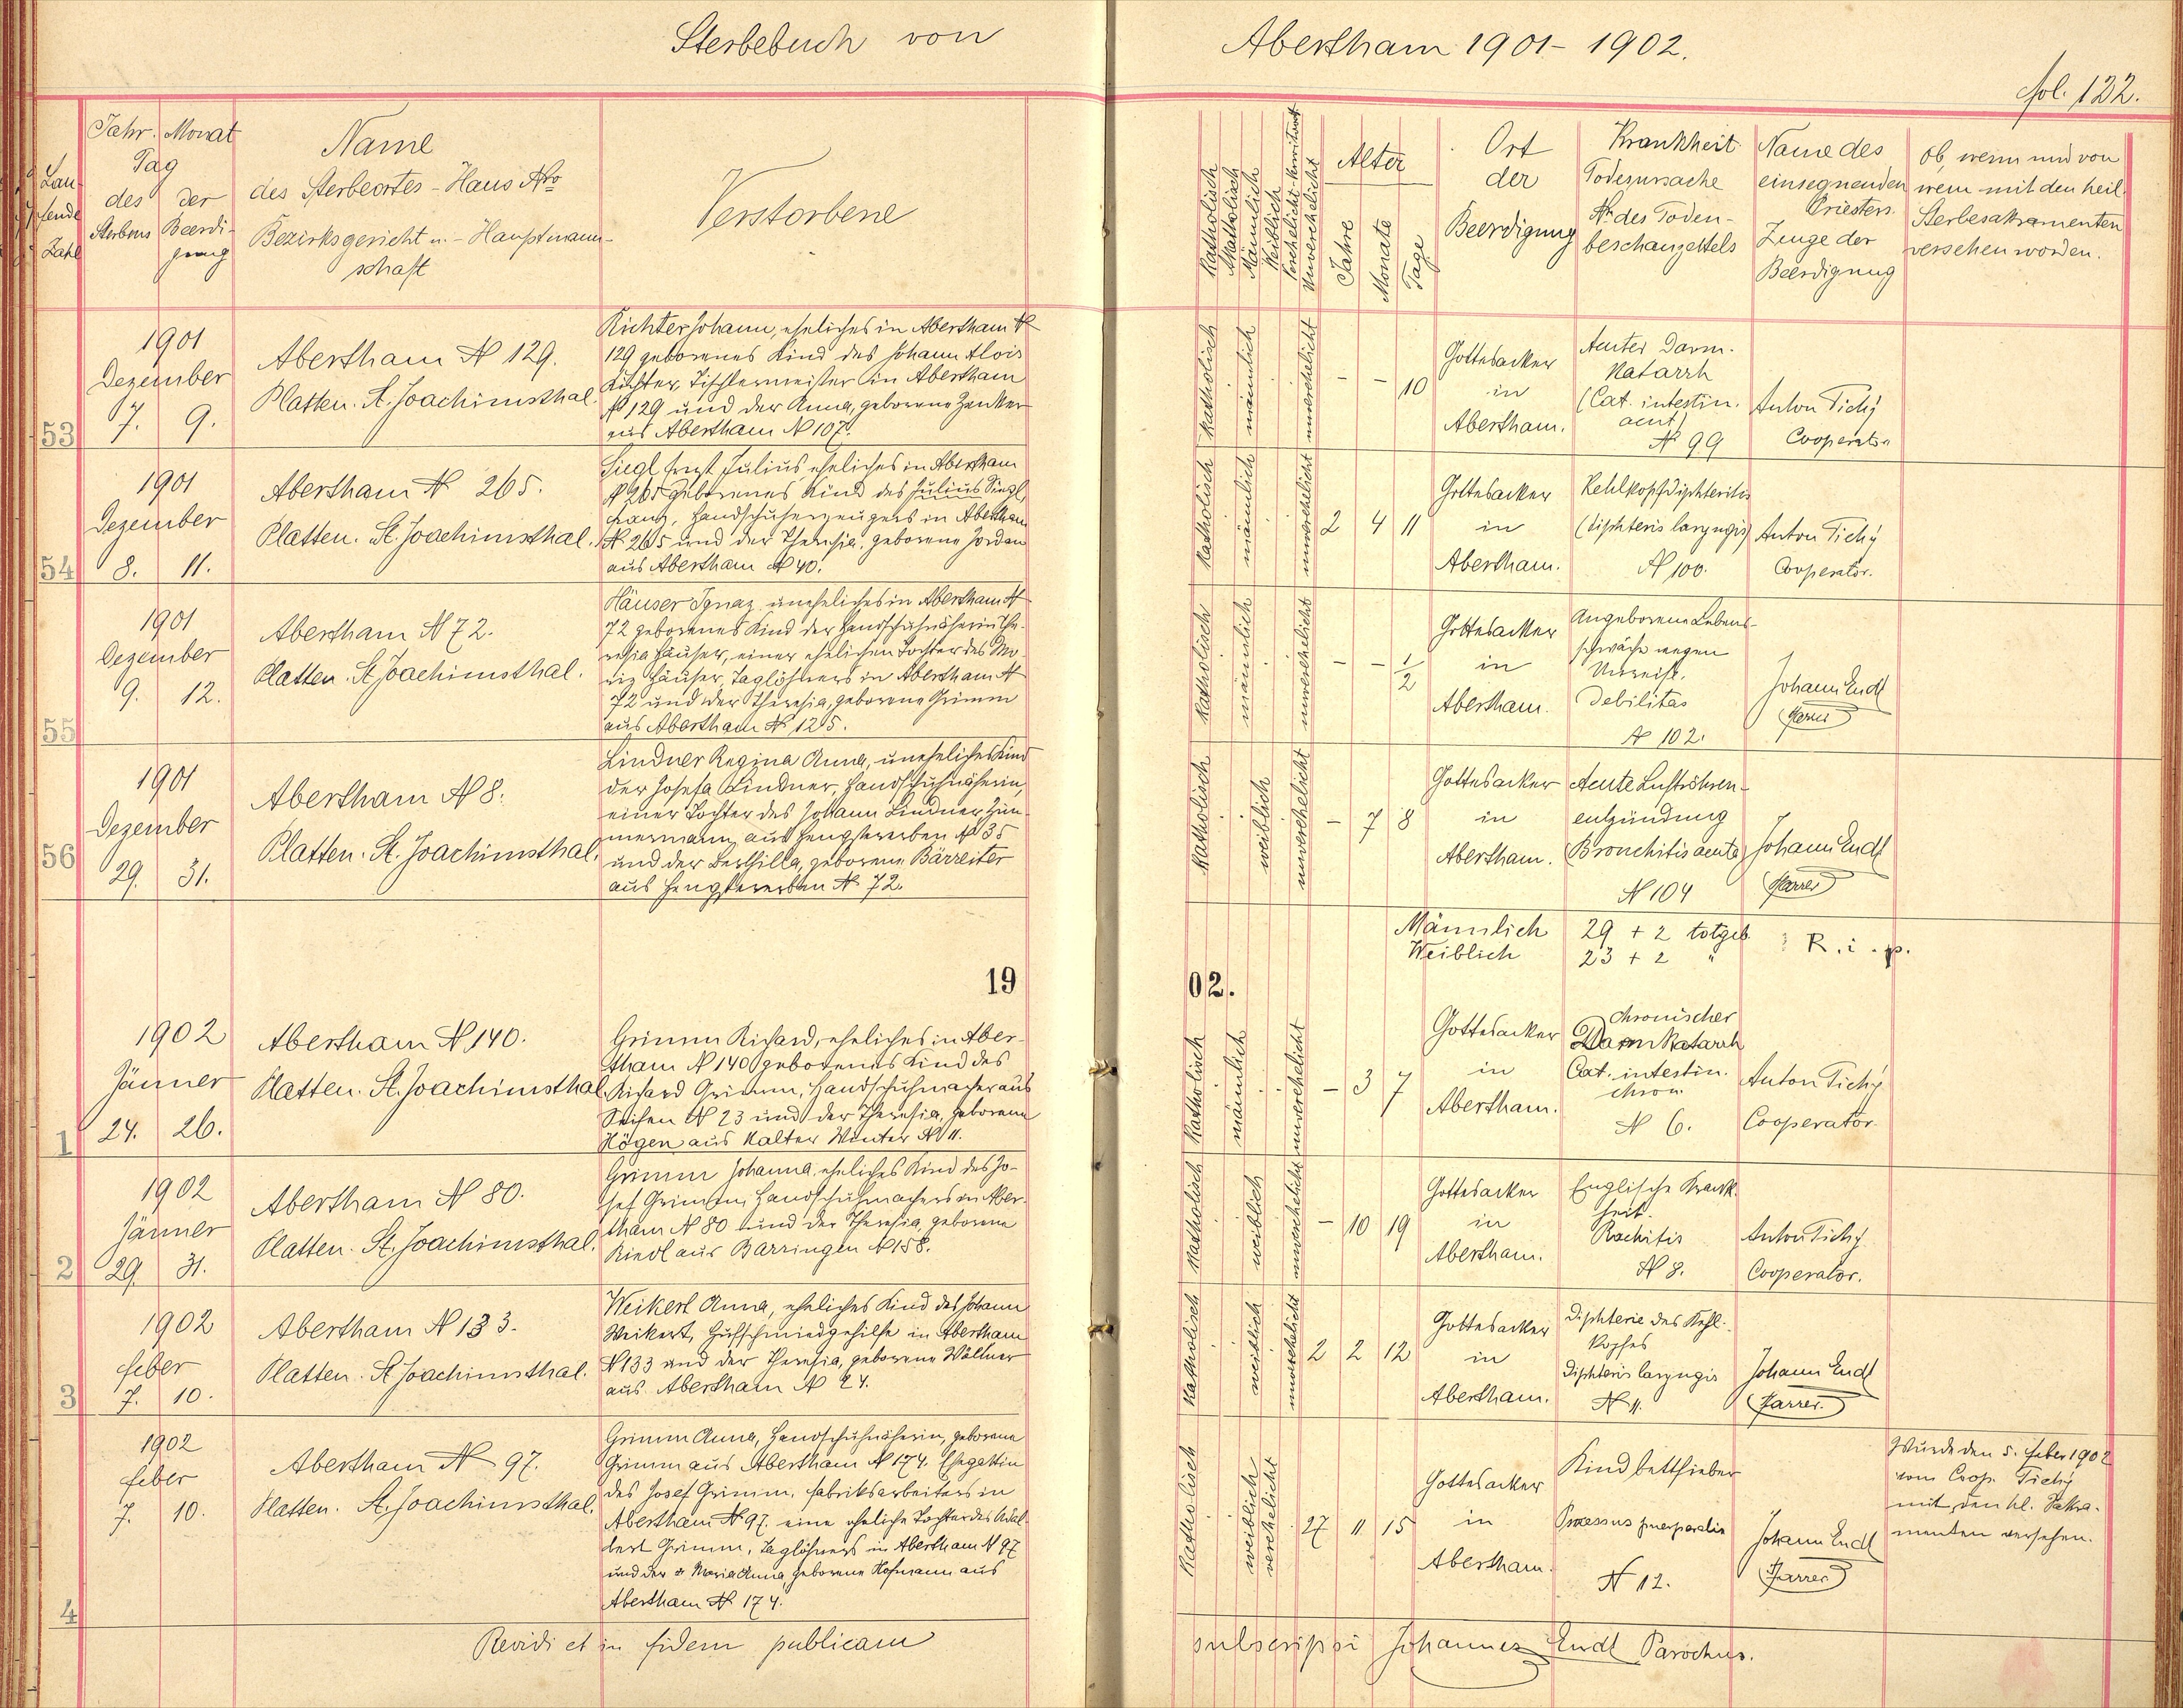 Sterbebuch von Abertham 1901 - 1902.
fol. 122.
Laufende Zahl
Jahr. Monat
Tag
des der
Sterbens Beerdigung
Name
des Sterbeortes - Haus Nro
Bezirksgericht u. - Hauptmann-
schaft
Verstorbene
Katholisch
Akatholisch
Männlich
Weiblich
Verehelicht - Verwitwet
Unverehelicht
Alter
Jahre
Monate
Tage
Ort
der
Beerdigung
Krankheit
Todesursache
Nr. des Toden-
beschauzettels
Name des
einsegnenden
Priesters.
Zeuge der
Beerdigung
Ob, wenn und von
wem mit den heil.
Sterbesakramenten
versehen worden.
53
1901
Dezember
7. 9.
Abertham N 129.
Platten. St. Joachimsthal.
Richter Johann, eheliches in Abertham N
129 geborenes Kind des Johann Alois
Richter, Tischlermeister in Abertham
N 129 und der Anna, geborene Zenker
aus Abertham N 107.
katholisch
männlich
unverehelicht
- - 10
Gottesacker
in
Abertham.
Acuter Darm-
Katarrh
(Cat. intestin.
acut)
N 99
Anton Tichý
Cooperator
54
1901
Dezember
8. 11.
Abertham N 265.
Platten. St. Joachimsthal.
Siegl Ernst Julius eheliches in Abertham
N 265 geborenes Kind des Julius Siegl
Franz, Handschuherzeugers in Abertham
N 265 und der Theresia, geborene Jordan
aus Abertham N 40.
katholisch
männlich
unverehelicht
2 4 11
Gottesacker
in
Abertham.
Kehlkopfdiphteritis
(diphteris laryngis)
N 100.
Anton Tichý
Cooperator.
55
1901
Dezember
9. 12.
Abertham N 72.
Platten. St. Joachimsthal.
Häuser Ignaz uneheliches in Abertham N
72 geborenes Kind der Handschuhnäherin The-
resia Häuser, einer ehelichen Tochter des Mo-
riz Häuser, Taglöhners in Abertham N
72 und der Theresia, geborene Grimm
aus Abertham N 125.
katholisch
männlich
unverehelicht
- - 1/2
Gottesacker
in
Abertham.
Angeborene Lebens-
schwäche wegen
Unreife.
Debilitas
N 102.
Johann Endt
Pfarrer
56
1901
Dezember
29. 31.
Abertham N 8.
Platten. St. Joachimsthal.
Lindner Regina Anna, uneheliches Kind
der Josefa Lindner, Handschuhnäherin,
einer Tochter des Johann Lindner, Zim-
mermann aus Hengstererben N 35
und der Berthilla, geborene Bärreiter
aus Hengstererben N 72.
katholisch
weiblich
unverehelicht
- 7 8
Gottesacker
in
Abertham.
Acute Luftröhren-
entzündung
(Bronchitis acuta)
N 104
Johann Endt
Pfarrer
Männlich 29 + 2 totgeb.
Weiblich 23 + 2 "
R. i. p.
1902.
1
1902
Jänner
24. 26.
Abertham N 140.
Platten. St. Joachimsthal.
Grimm Richard, eheliches in Aber-
tham N 140 geborenes Kind des
Richard Grimm, Handschuhmacher aus
Seifen N 23 und der Theresia, geborene
Högen aus Kalter Winter N 11.
katholisch
männlich
unverehelicht
- 3 7
Gottesacker
in
Abertham.
chronischer
Darm Katarrh
Cat. intestin.
chron.
N 6.
Anton Tichý
Cooperator.
2
1902
Jänner
29. 31.
Abertham N 80.
Platten. St. Joachimsthal.
Grimm Johanna, eheliches Kind des Jo-
sef Grimm, Handschuhmachers in Aber-
tham N 80 und der Theresia, geborene
Riedl aus Barringen N 158.
katholisch
weiblich
unverehelicht
- 10 19
Gottesacker
in
Abertham.
Englische Krank-
heit.
Rachitis
N 8.
Anton Tichý
Cooperator.
3
1902
Feber
7. 10.
Abertham N 133.
Platten. St. Joachimsthal.
Weikert Anna, eheliches Kind des Johann
Weikert, Hufschmiedgehilfe in Abertham
N 133 und der Theresia, geborene Wöllner
aus Abertham N 24.
katholisch
weiblich
unverehelicht
2 2 12
Gottesacker
in
Abertham.
Diphterie des Kehl-
kopfes
Diphteris laryngis
N 11.
Johann Endt
Pfarrer.
4
1902
Feber
7. 10.
Abertham N 97.
Platten. St. Joachimsthal.
Grimm Anna, Handschuhnäherin, geborene
Grimm aus Abertham N 174. Ehegattin
des Josef Grimm, Fabriksarbeiters in
Abertham N 97. eine eheliche Tochter des Adal-
bert Grimm, Taglöhners in Abertham N 97
und der Maria Anna, geborene Hofmann aus
Abertham N 174.
katholisch
weiblich
verehelicht
27 11 15
Gottesacker
in
Abertham.
Kindbettfieber
Processus puerperalis
N 12.
Johann Endt
Pfarrer
Wurde den 5. Feber 1902
vom Coop. Tichý
mit den hl. Sakra-
menten versehen.
Revidi et in fidem publicam subscripsi Johannes Endt Parochus.